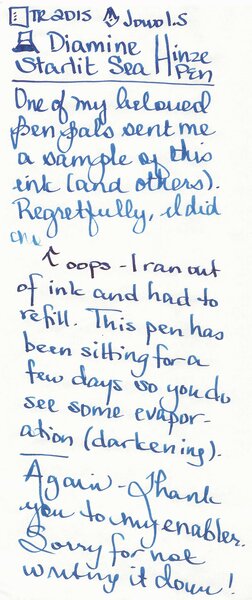 TR2015 Jowo 1.5
Diamine Hinze
Starlit Sea Pen
One of my beloved
pen pals sent me
a sample of this
ink (and others).
Regretfully, I did
oops - I ran out
of ink and had to
refill. This pen has
been sitting for a
few days so you do
see some evapor-
ation (darkening).
Again - Thank
you to my enabler.
Sorry for not
writing it down!